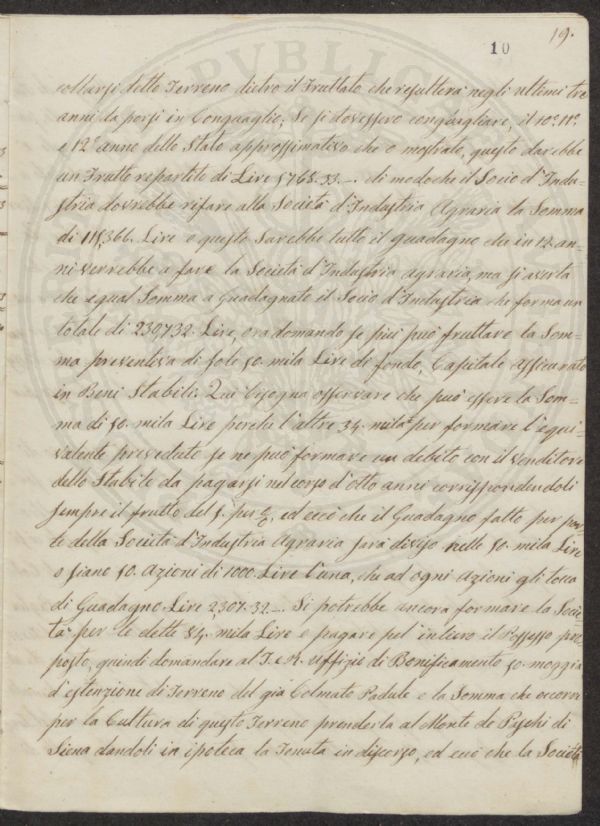 19.
10
collarsi detto Terreno dietro il Fruttato che resulterà negli ultimi tre
anni da porsi in Conguaglio; Se si dovessero conguagliare, il 10.º 11.º
e 12.º anno dello Stato approssimativo che o mostrato, questo darebbe
un Frutto repartito di Lire 5765.33._ di modoche il Socio d'Indu=
stria dovrebbe rifare alla Società d'Industria Agraria la Somma
di 115,366. Lire e questo Sarebbe tutto il guadagno che in 12. an=
ni verrebbe a fare la Società d'Industria Agraria, ma si averta
che egual Somma a Guadagnato il Socio d'Industria che forma un
totale di 230,732. Lire, ora domando se piui può fruttare la Som=
ma preventiva di sole 50. mila Lire di fondo, Capitale Assicurato
in Beni Stabili. Qui bisogna osservare che può essere la Som=
ma di 50. mila Lire perche l'altre 34. mila per formare l'equi=
valente preveduto se ne può formare un debito con il Venditore
dello Stabile da pagarsi nel corso d'otto anni corrispondendoli
sempre il frutto del 5. per %, ed ecco che il Guadagno fatto per par
te della Società d'Industria Agraria sarà diviso nelle 50. mila Lire
o siano 50. Azioni di 1000. Lire l'una, che ad ogni Azioni gli tocca
di Guadagno Lire 2,307.32._ Si potrebbe ancora formare la Socie
tà per le dette 84. mila Lire e pagare pel intiero il Possesso pro
posto, quindi domandare al I. e R. Uffizio di Bonificamento 50. moggia
d'estenzione di Terreno del già Colmato Padule e la Somma che occorre
per la Cultura di questo Terreno prenderla al Monte de Paschi di
Siena dandoli in ipoteca la Tenuta in discorso, ed ecco che la Società